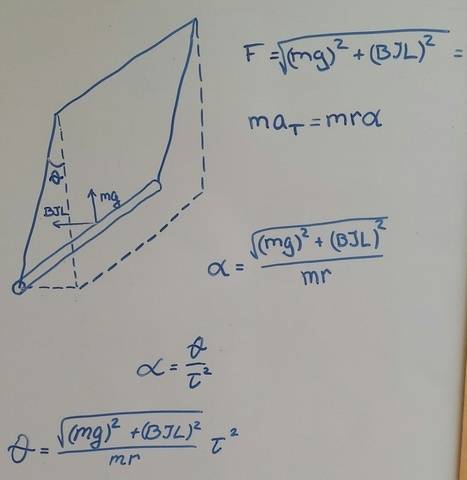 F = √((mg)² + (BIL)²) =
ma_T = mrα
θ
mg
BIL
α = √((mg)² + (BIL)²) / mr
α = θ / τ²
θ = √((mg)² + (BIL)²) / mr τ²